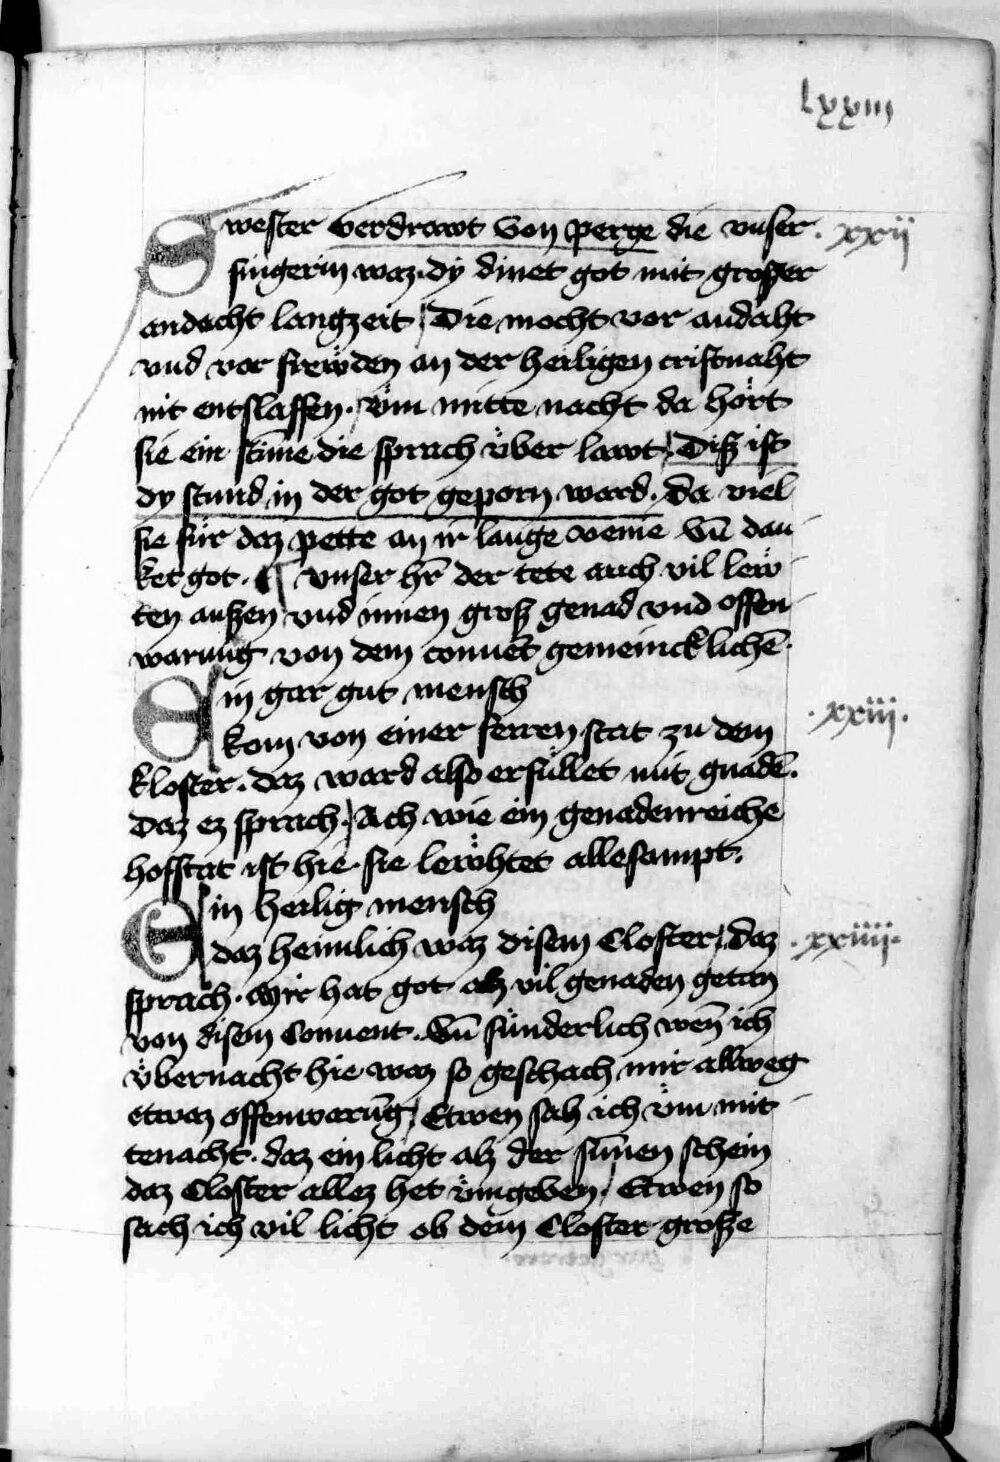 lxxiii
Swester verdrawt von perge die vnser · xxii
singerin waz · dy dinet got mit grosser
andacht langzeit / Die mocht vor andaht
vnd vor frewden an der heiligen cristnaht
nit entslaffen · vm mitte nacht da hört
sie ein stim̄e die sprach vber lawt / Diß ist
dy stund in der got geporn ward · da viel
sie für daz pette an ir lange venie vn̄ dan
ket got · ¶ vnser hr̄ der tete auch vil lew
ten außen vnd innen groß genad vnd offen
warung von dem conuēt gemeincklichē ·
Ein gar gut mensch
kom von einer ferren stat zu dem · xxiii ·
kloster · daz ward also erfüllet mit gnadē ·
Daz ez sprach / Ach wie ein genadenreiche
hofstat ist hie · sie lewhtet allesampt ·
Ein heilig mensch
daz heimlich waz disem Closter / daz · xxiiii ·
sprach · Mir hat got alz vil genaden getan
von disem Conuent · Vn̄ sünderlich wen̄ ich
vbernacht hie waz so geschach mir allweg
etwaz offenwarūg / Etwen sah ich vm mit
tenacht · daz ein licht alz der sun̄en schein
daz Closter allez het vmgeben / Etwen so
sach ich vil licht ob dem Closter große